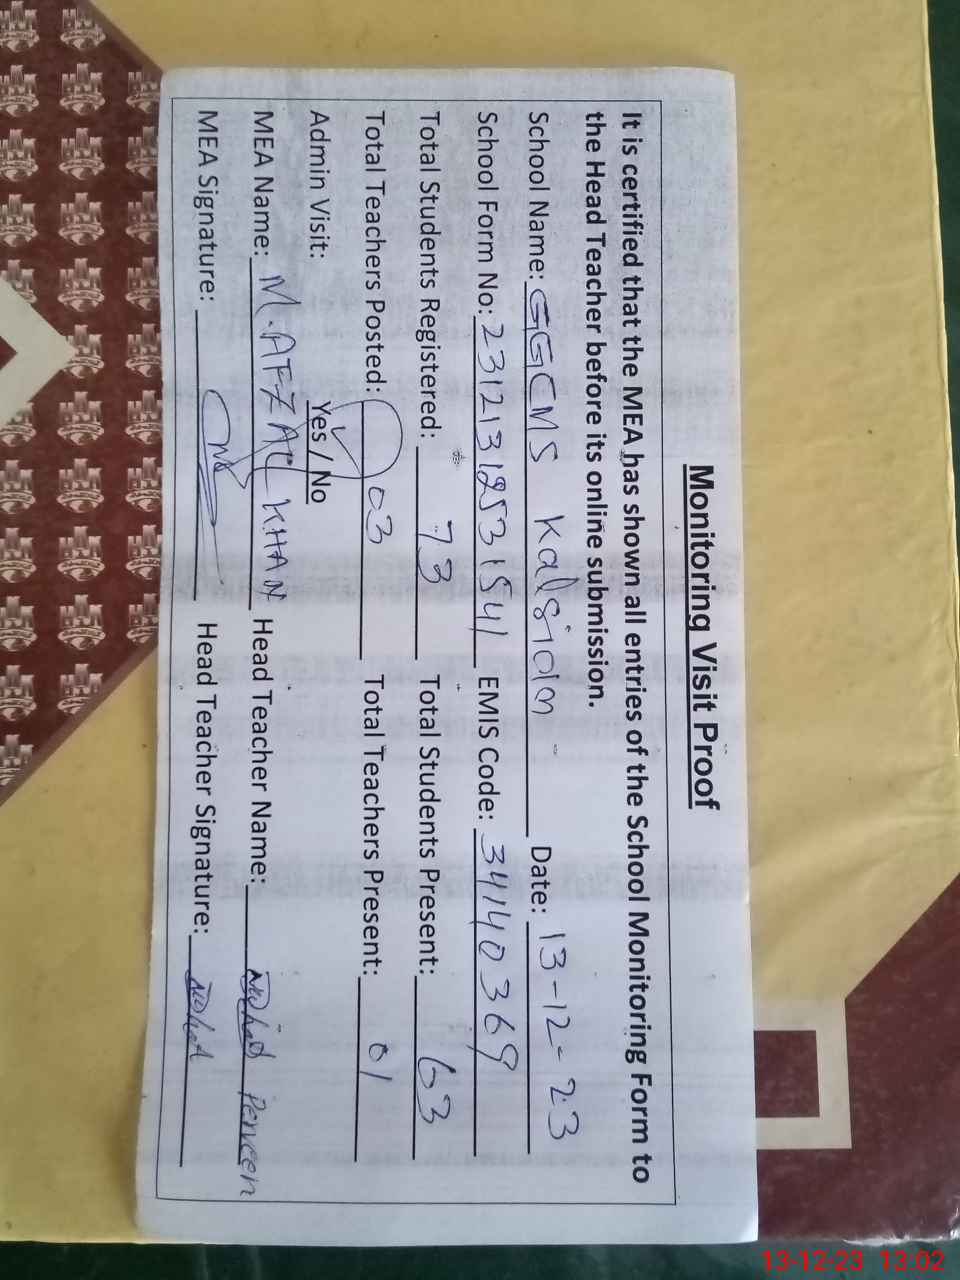 Monitoring Visit Proof
It is certified that the MEA has shown all entries of the School Monitoring Form to
the Head Teacher before its online submission.
School Name: GGEMS Kalsian Date: 13-12-23
School Form No: 23121312531541 EMIS Code: 34140369
Total Students Registered: 73 Total Students Present: 63
Total Teachers Posted: 03 Total Teachers Present: 01
Admin Visit: Yes / No
MEA Name: M. AFZAL KHAN Head Teacher Name: Nuhat Perveen
MEA Signature: Head Teacher Signature: Nuhat
13-12-23 13:02